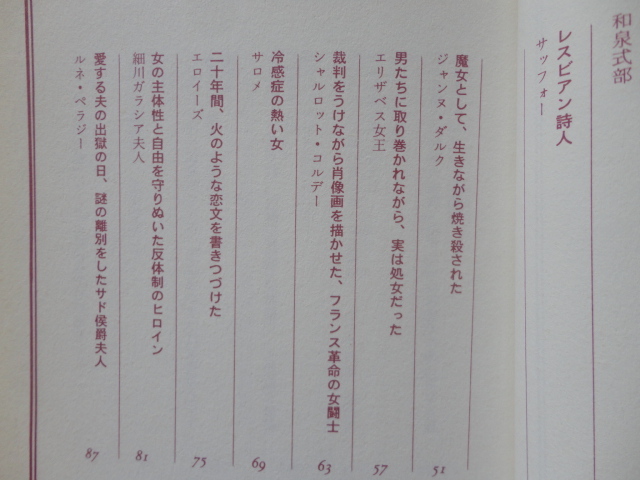 和泉式部
レスビアン詩人
サッフォー
魔女として、生きながら焼き殺された
ジャンヌ・ダルク
51
男たちに取り巻かれながら、実は処女だった
エリザベス女王
57
裁判をうけながら肖像画を描かせた、フランス革命の女闘士
シャルロット・コルデー
63
冷感症の熱い女
サロメ
69
二十年間、火のような恋文を書きつづけた
エロイーズ
75
女の主体性と自由を守りぬいた反体制のヒロイン
細川ガラシア夫人
81
愛する夫の出獄の日、謎の離別をしたサド侯爵夫人
ルネ・ペラジー
87